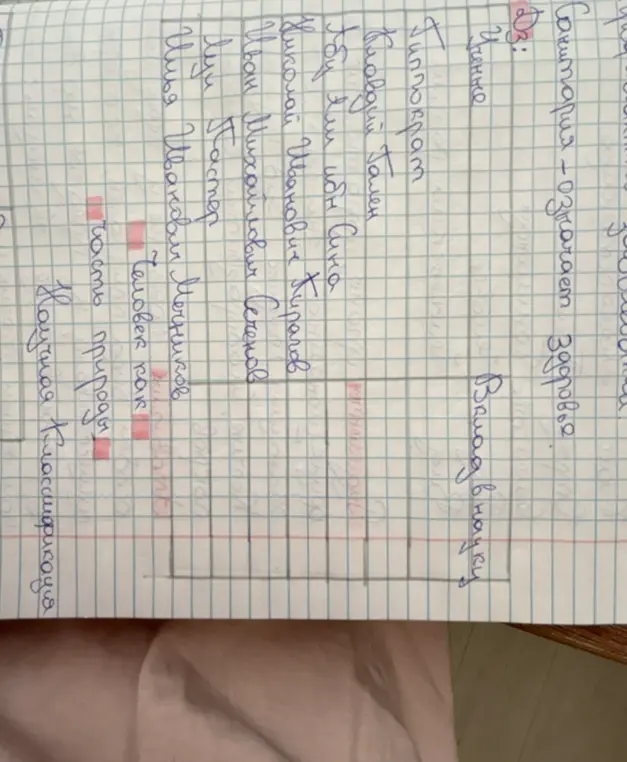 Санитария - означает здоровье.
Дз:
Ученые Вклад в науку
Гиппократ
Клавдий Гален
Абу Али ибн Сина
Николай Иванович Пирагов
Иван Михайлович Сеченов
Луи Пастер
Илья Иванович Мечников
Человек как
часть природы
Научная классификация